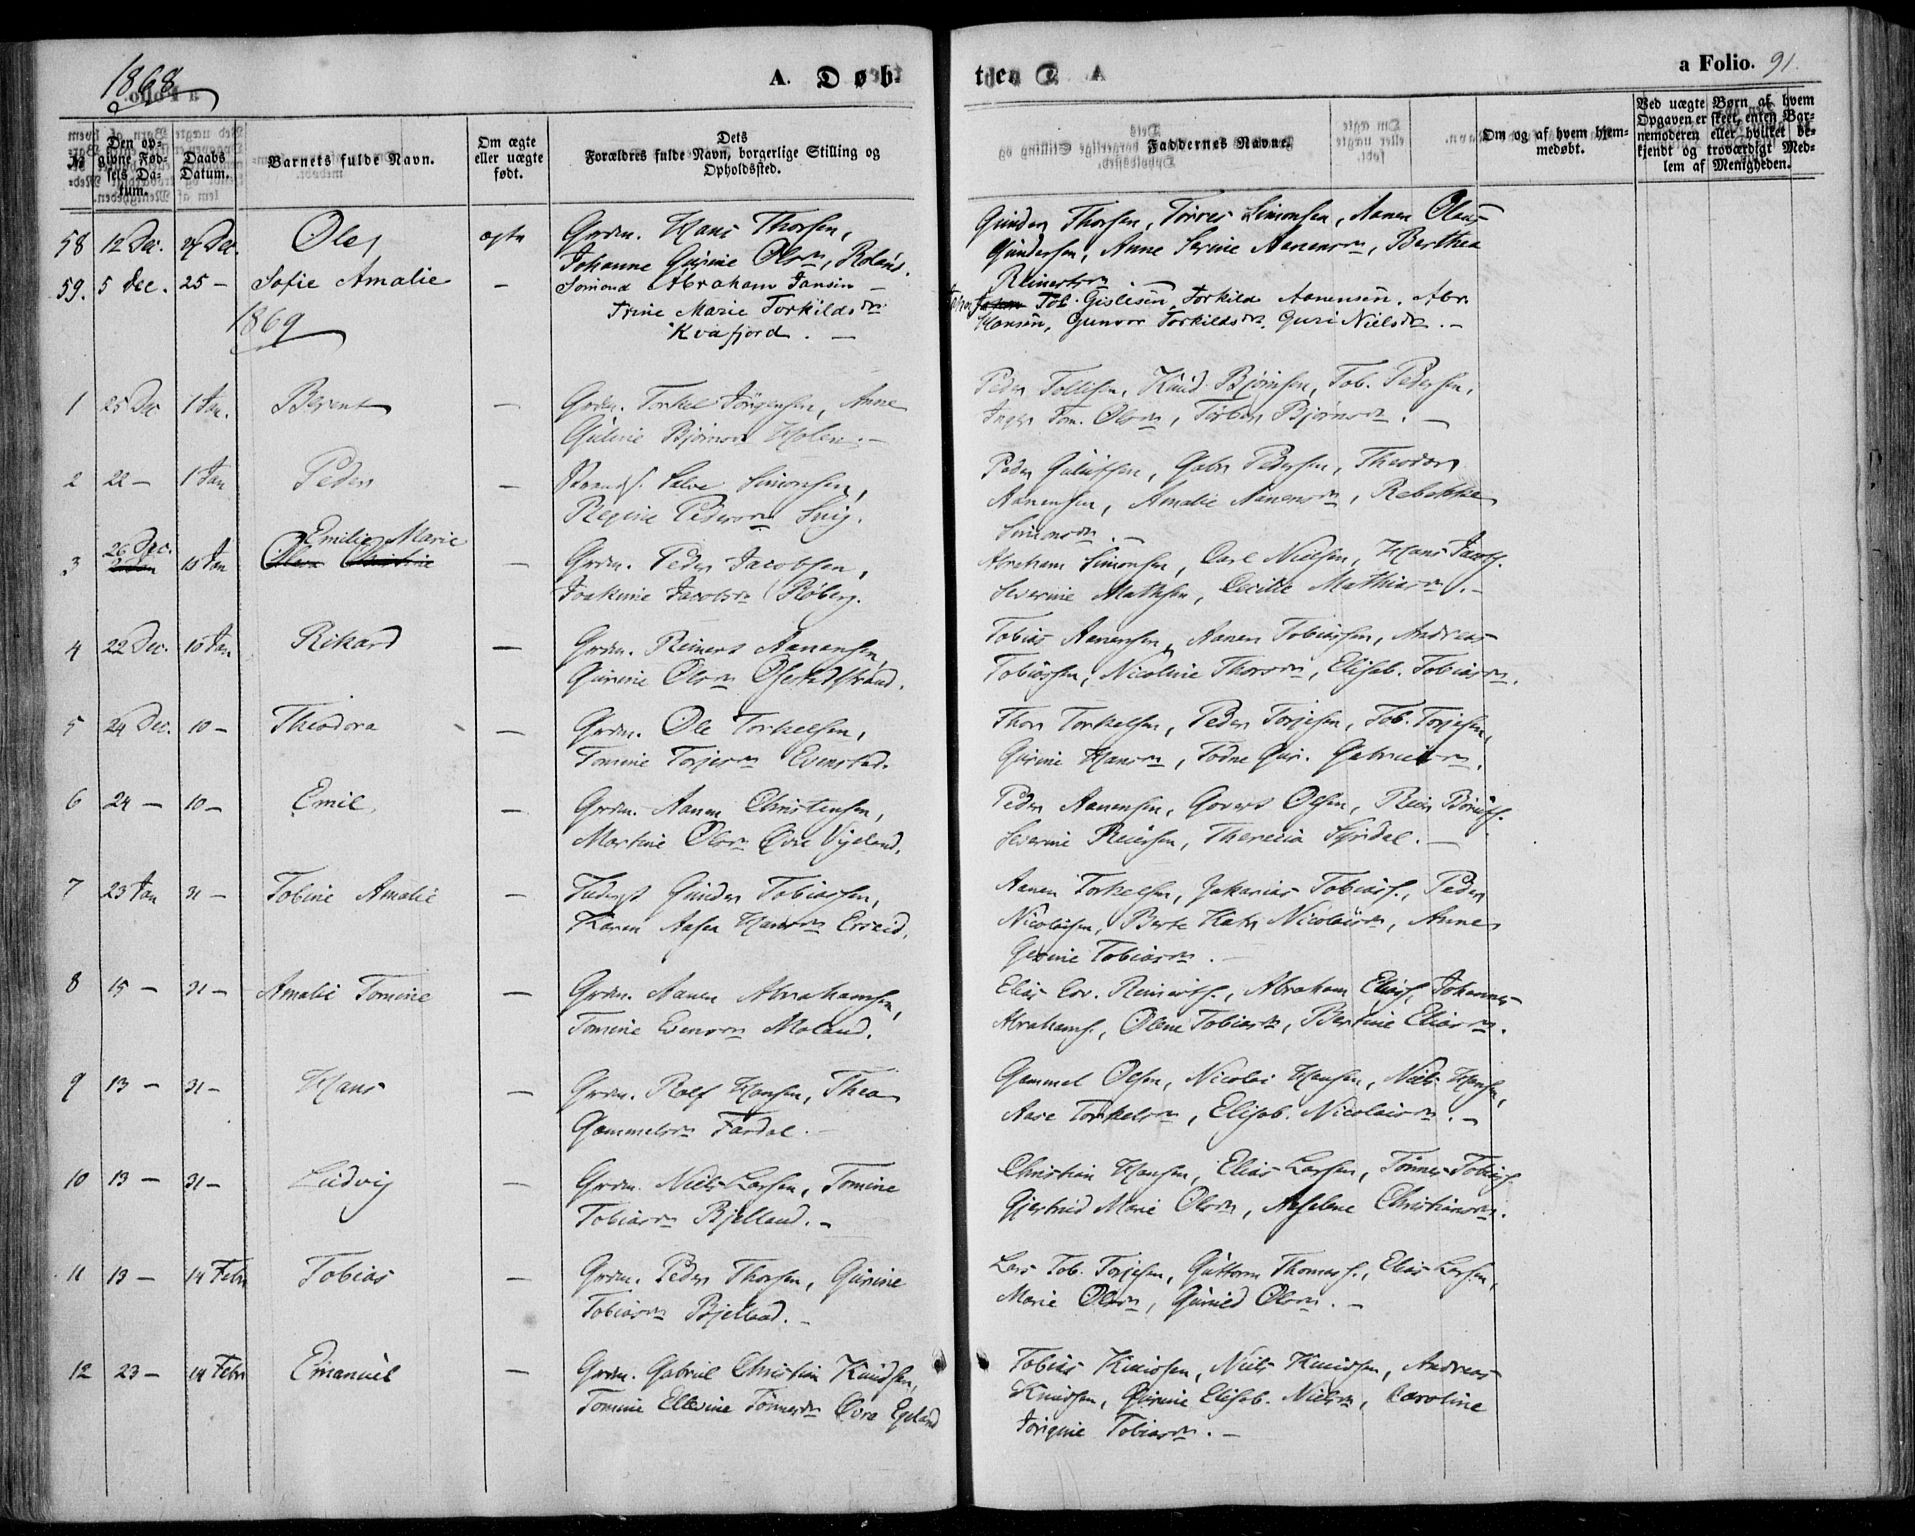 1868
A. Døb-
tes. A
a Folio. 91.
№
Den op-
givne Fød-
sels Da-
tum.
Daabs
Datum.
Barnets fulde Navn.
Om ægte
eller uægte
født.
Dets
Forældres fulde Navn, borgerlige Stilling og
Opholdssted.
Faddernes Navne.
Om og af hvem hjem-
medøbt.
Ved uægte Børn af hvem
Opgaven er skeet, enten Bar-
nemoderen eller hvilket be-
kjendt og troværdigt Med-
lem af Menigheden.
58 12 Dec. 27 Dec. Ole ægte Grdm. Hans Thorsen,
Johanne Gurine Olsdr, Roland.
Gunder Thorsen, Tørres Simonsen, Aanen Olaus
Gundersen, Anne Serine Aanensdr, Berthea
Reinertsdr. —
59. 5 Dec. 25 — Sofie Amalie — Sømand Abraham Jansen —
Trine Marie Torkildsdr
Kvafjord. —
Tob. Gislesen, Torkild Aanensen. Abr.
Hansen, Gunvor Torkildsdr. Guri Nielsdr. —
1869
1 25 Dec 1 Jan. Berent — Grdm. Torkel Jørgensen, Anne
Guline Bjørnsdr Holen. —
Peder Tollisen, Knud Bjørnsen, Tob. Pedersen,
Inger Tom. Olsdr, Torbor Bjørnsdr. —
2 22 — 1 Jan Peder — Salve Simonsen,
Regine Pedersdr Suig.
Peder Gulufsen, Gabr Pedersen, Theodor
Aanensen, Amalie Aanensdr, Rebekka
Simonsdr. —
3 26 Dec. 10 Jan Emilie Marie — Grdm. Peder Jacobsen,
Joakime Jacobsdr Røberg.
Abraham Simonsen, Carl Nielsen, Hans Jacobs.
Severine Mathsen, Cecilie Mathiasdr. —
4 22 Dec. 10 Jan Rikard — Grdm. Reinert Aanensen,
Gurine Olsdr Ofestadstrand.
Tobias Aanensen, Aanen Tobiassen, Andreas
Tobiassen, Nicoline Thorsdr, Elisab. Tobiasdr.
5 24 Dec. 10 — Theodora — Grdm. Ole Torkelsen,
Tomine Torjesdr Evenstad.
Thor Torkelsen, Peder Torjesen, Tob. Torjesen,
Gurine Hansdr, Todne Gur. Gabrielsdr.
6 24 — 10 — Emil — Grdm. Aanen Christensen,
Martine Olsdr Øvre Vigeland.
Peder Aanensen, Govert Olsen, Reier
Severine Reiersen, Therecia Syrdal. —
7 23 Jan 31 — Tobine Amalie — Inderst Gunder Tobiassen,
Karen Aasa Hansdr Erkeid.
Aanen Torkelsen, Zakarias Tobiass., Peder
Nicolaisen, Berte Kat. Nicolaisdr, Anne
Gesine Tobiasdr. —
8 15 — 31 — Amalie Tomine — Grdm. Aanen Abrahamsen,
Tomine Evensdr Moland.
Elias Edv. Reinerts., Abraham Eliass., Johannes
Abrahams., Oline Tobiasdr, Bertine Eliasdr.
9 13 — 31 — Hans — Grdm. Rolf Hansen, Thea
Gammelsdr Fardal. —
Gammel Olsen, Nicolai Hansen, Niels Hansen,
Aase Torkelsdr, Elisab. Nicolaisdr. —
10 13 — 31 — Ludvig — Grdm. Niels Larsen, Tomine
Tobiasdr Bjelland. —
Christian Hansen, Elias Larsen, Tønnes Tobiass.
Gjertrud Marie Olsdr, Anselene Christiansdr.
11 13 — 14 Febr Tobias — Grdm. Peder Thorsen, Gurine
Tobiasdr Bjelland. —
Lars Tob. Torjesen, Guttorm Thomass., Elias Larsen,
Marie Olsdr, Guruld Olsdr. —
12 23 — 14 Febr Emanuel — Grdm. Gabriel Christian Knudsen,
Tomine Ellevine Tønnesdr Øvre Egeland
Tobias Knudsen, Niels Knudsen, Andreas
Knudsen, Gurine Elisab. Nielsdr, Caroline
Jørgine Tobiasdr. —